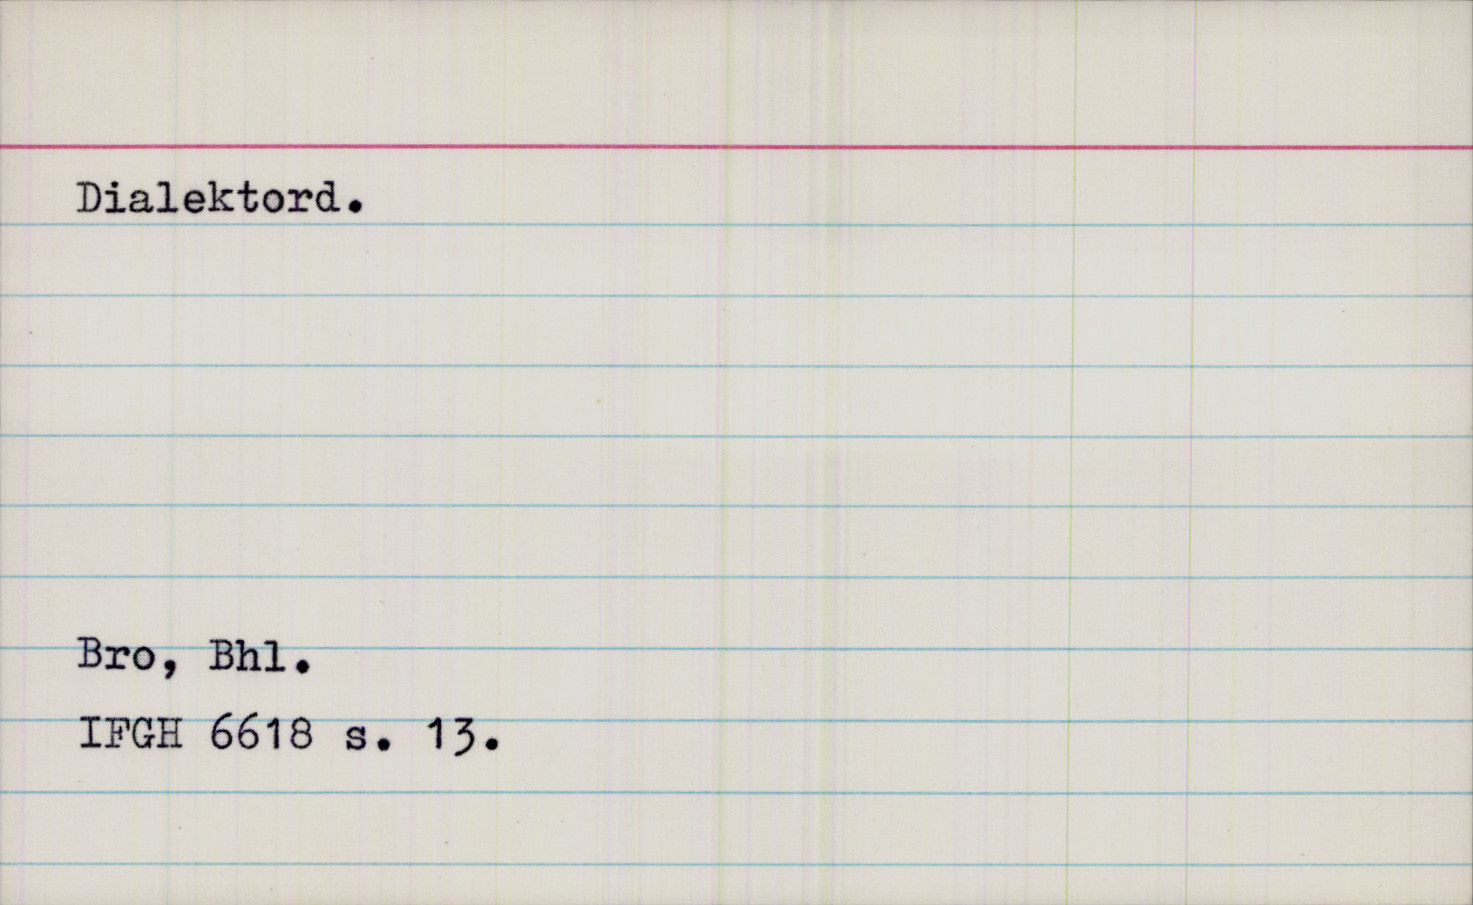 Dialektord.
Bro, Bhl.
IFGH 6618 s. 13.